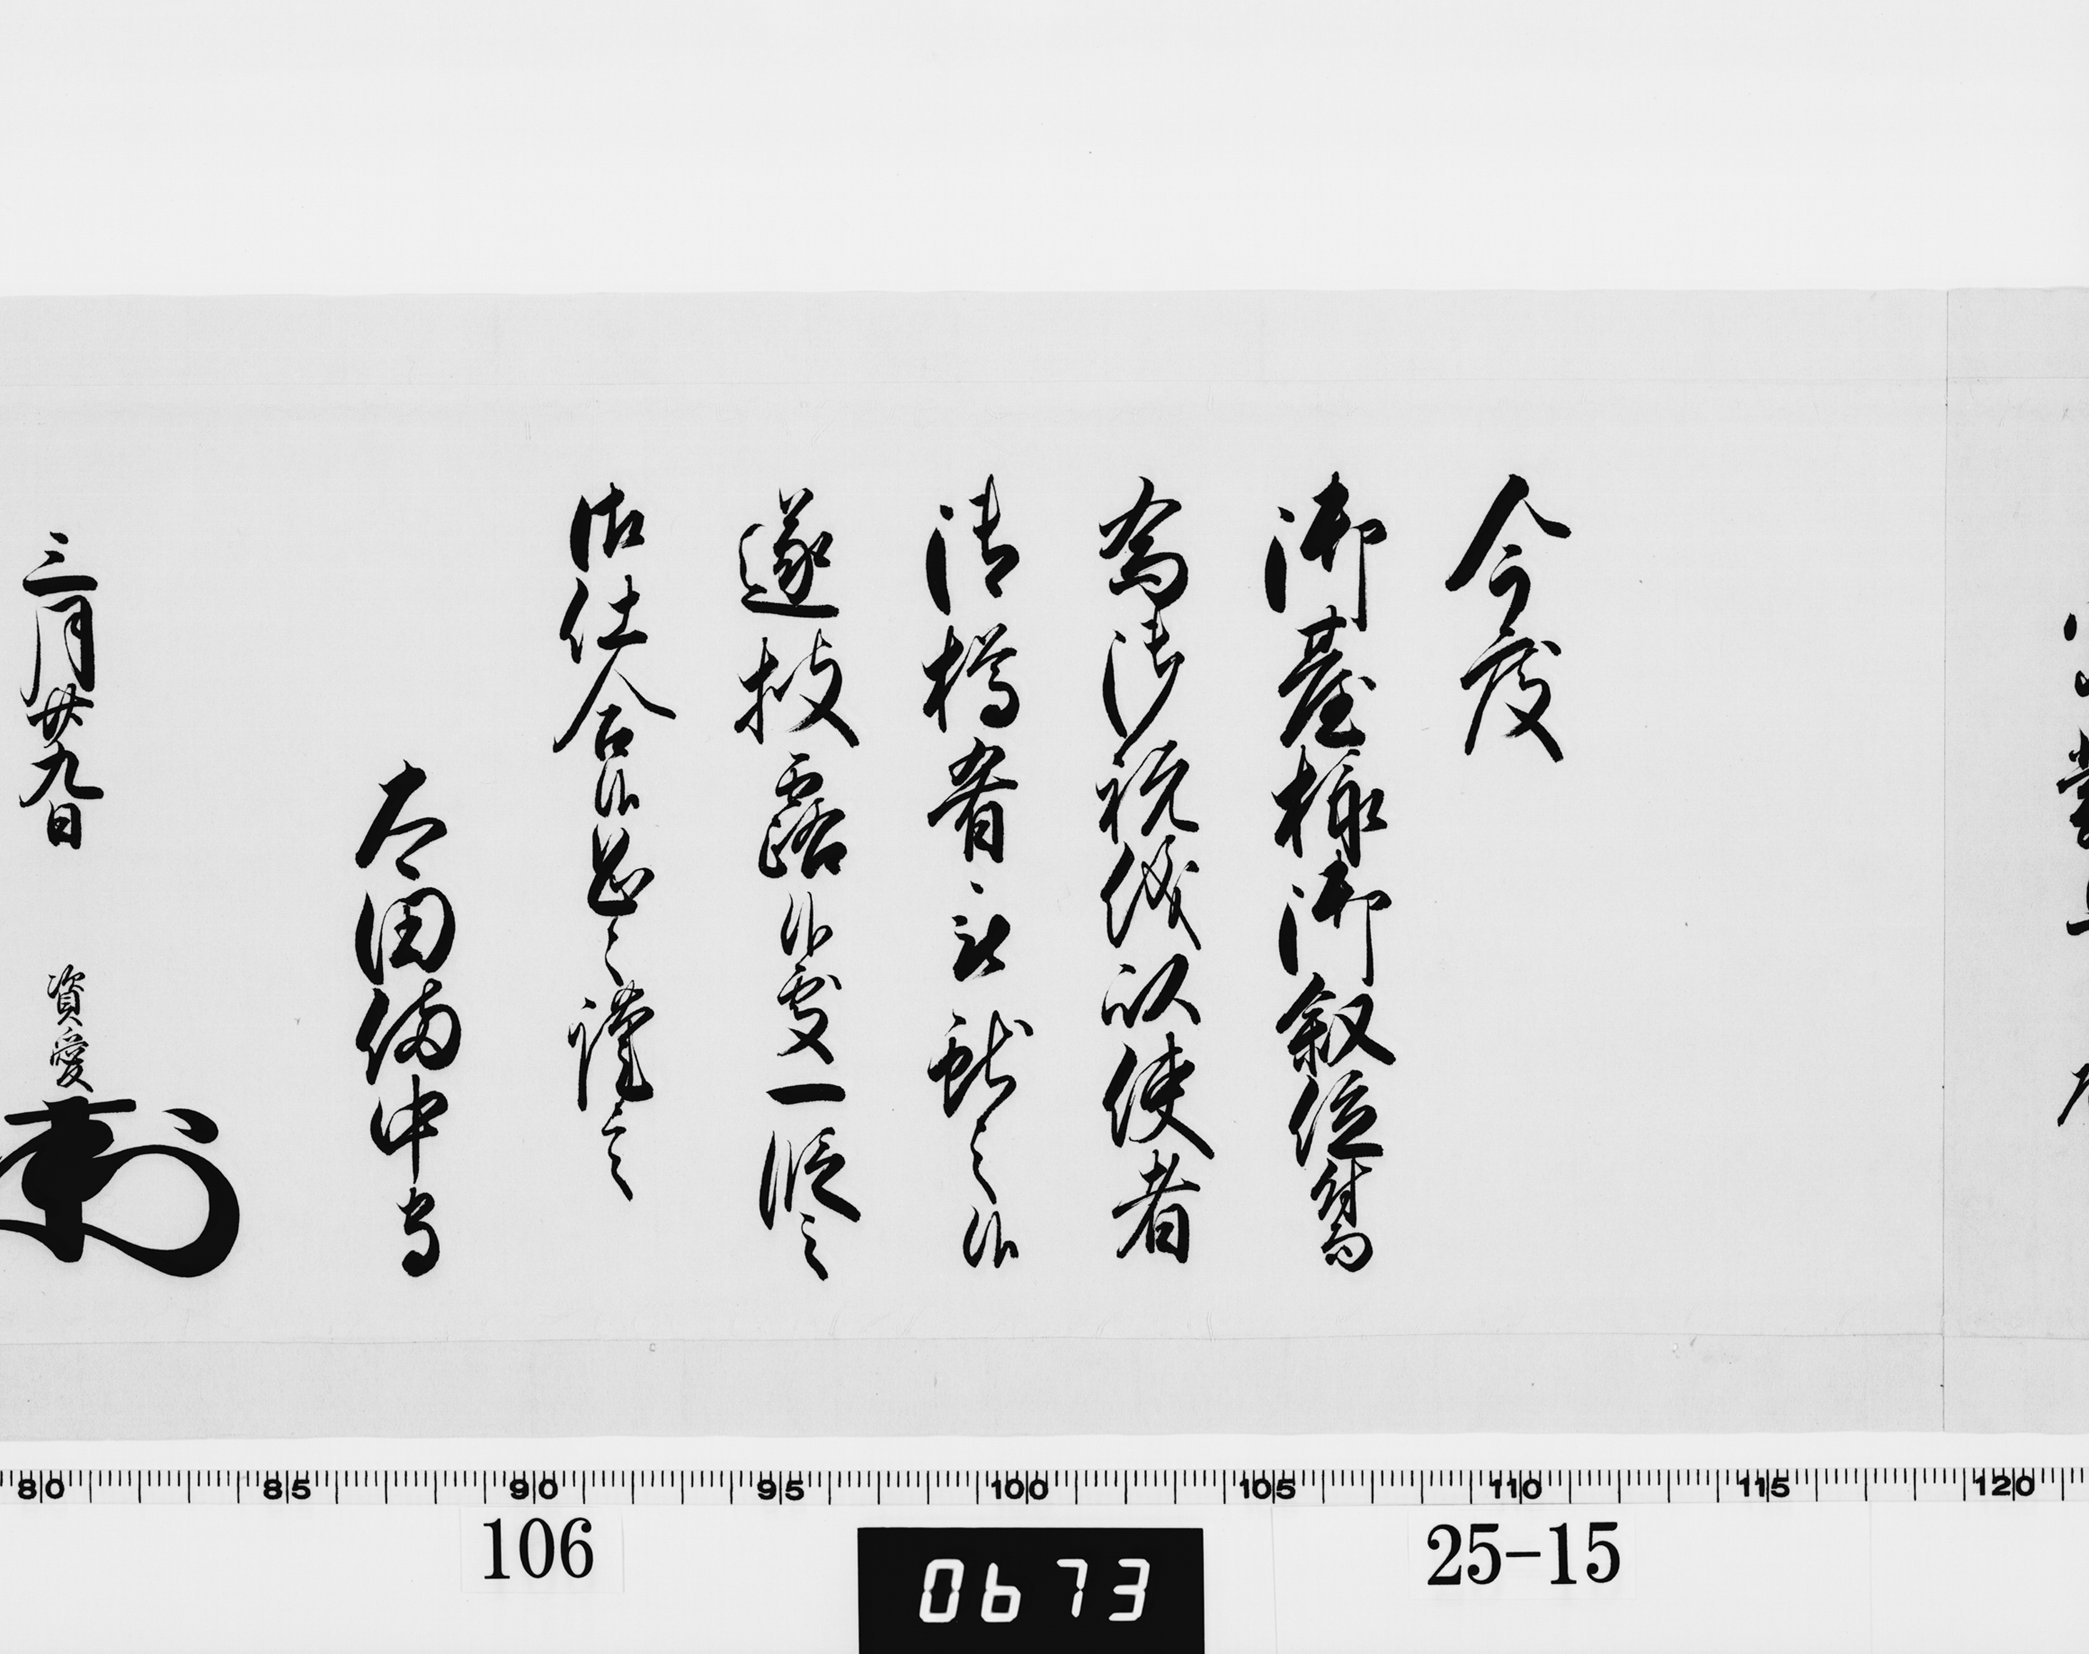 今度
御臺様御叙位付爲
爲御祝儀以使者
御樽肴被献之候
遂披露候處一段之
御仕合候恐々謹言
太田備中守
三月廿九日 資愛
80 85 90 95 100 105 110 115 120
106
0673
25-15